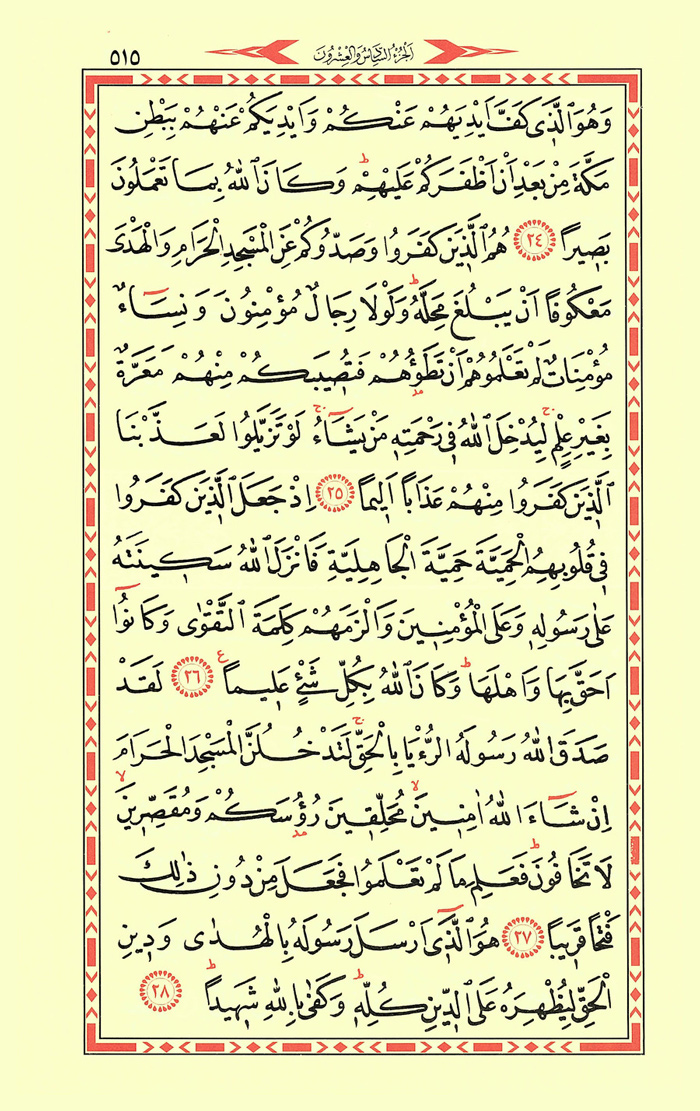 الجزء السادس والعشرون ٥١٥
وَهُوَ الَّذ۪ي كَفَّ اَيْدِيَهُمْ عَنْكُمْ وَاَيْدِيَكُمْ عَنْهُمْ بِبَطْنِ
مَكَّةَ مِنْ بَعْدِ اَنْ اَظْفَرَكُمْ عَلَيْهِمْۜ وَكَانَ اللّٰهُ بِمَا تَعْمَلُونَ
بَص۪يراً ﴿٢٤﴾ هُمُ الَّذ۪ينَ كَفَرُوا وَصَدُّوكُمْ عَنِ الْمَسْجِدِ الْحَرَامِ وَالْهَدْيَ
مَعْكُوفاً اَنْ يَبْلُغَ مَحِلَّهُۜ وَلَوْلَا رِجَالٌ مُؤْمِنُونَ وَنِسَٓاءٌ
مُؤْمِنَاتٌ لَمْ تَعْلَمُوهُمْ اَنْ تَطَؤُ۫هُمْ فَتُص۪يبَكُمْ مِنْهُمْ مَعَرَّةٌ
بِغَيْرِ عِلْمٍۚ لِيُدْخِلَ اللّٰهُ ف۪ي رَحْمَتِه۪ مَنْ يَشَٓاءُۚ لَوْ تَزَيَّلُوا لَعَذَّبْنَا
الَّذ۪ينَ كَفَرُوا مِنْهُمْ عَذَاباً اَل۪يماً ﴿٢٥﴾ اِذْ جَعَلَ الَّذ۪ينَ كَفَرُوا
ف۪ي قُلُوبِهِمُ الْحَمِيَّةَ حَمِيَّةَ الْجَاهِلِيَّةِ فَاَنْزَلَ اللّٰهُ سَك۪ينَتَهُ
عَلٰى رَسُولِه۪ وَعَلَى الْمُؤْمِن۪ينَ وَاَلْزَمَهُمْ كَلِمَةَ التَّقْوٰى وَكَانُٓوا
اَحَقَّ بِهَا وَاَهْلَهَاۜ وَكَانَ اللّٰهُ بِكُلِّ شَيْءٍ عَل۪يماً۟ ﴿٢٦﴾ لَقَدْ
صَدَقَ اللّٰهُ رَسُولَهُ الرُّءْيَا بِالْحَقِّۚ لَتَدْخُلُنَّ الْمَسْجِدَ الْحَرَامَ
اِنْ شَٓاءَ اللّٰهُ اٰمِن۪ينَۙ مُحَلِّق۪ينَ رُؤُ۫سَكُمْ وَمُقَصِّر۪ينَۙ
لَا تَخَافُونَۜ فَعَلِمَ مَا لَمْ تَعْلَمُوا فَجَعَلَ مِنْ دُونِ ذٰلِكَ
فَتْحاً قَر۪يباً ﴿٢٧﴾ هُوَ الَّذ۪ٓي اَرْسَلَ رَسُولَهُ بِالْهُدٰى وَد۪ينِ
الْحَقِّ لِيُظْهِرَهُ عَلَى الدّ۪ينِ كُلِّه۪ۜ وَكَفٰى بِاللّٰهِ شَه۪يداًۜ ﴿٢٨﴾